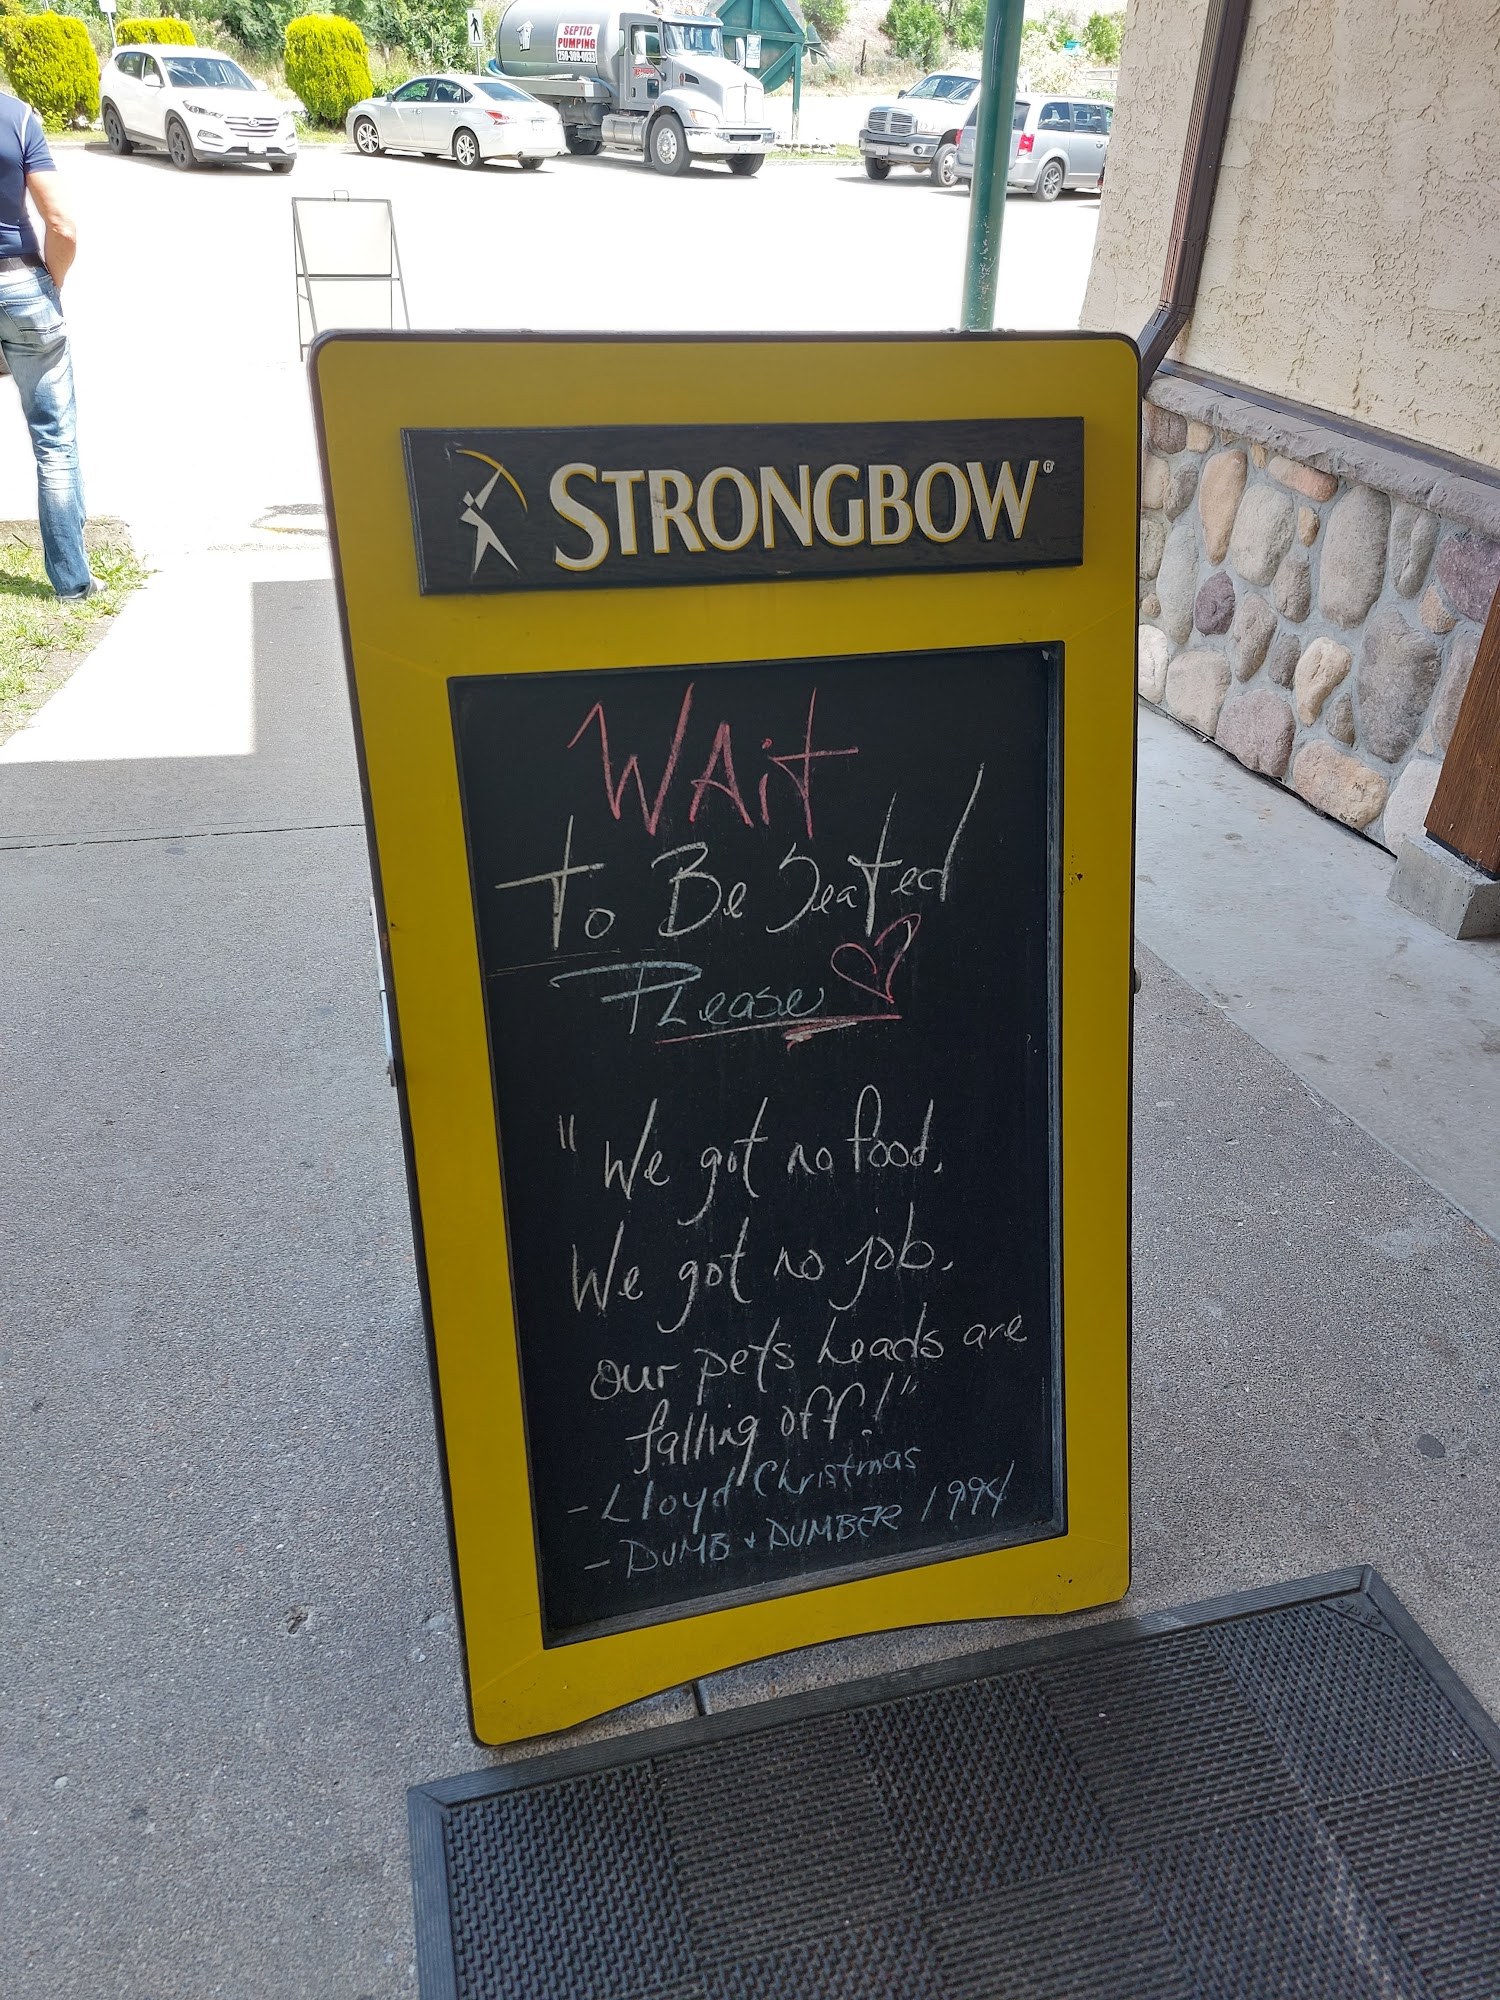 SEPTIC
PUMPING
250-309-0033
STRONGBOW®
WAit
To Be Seated
PLease
"We got no food,
We got no job,
our pets heads are
falling off!"
- Lloyd Christmas
- DUMB + DUMBER 1994